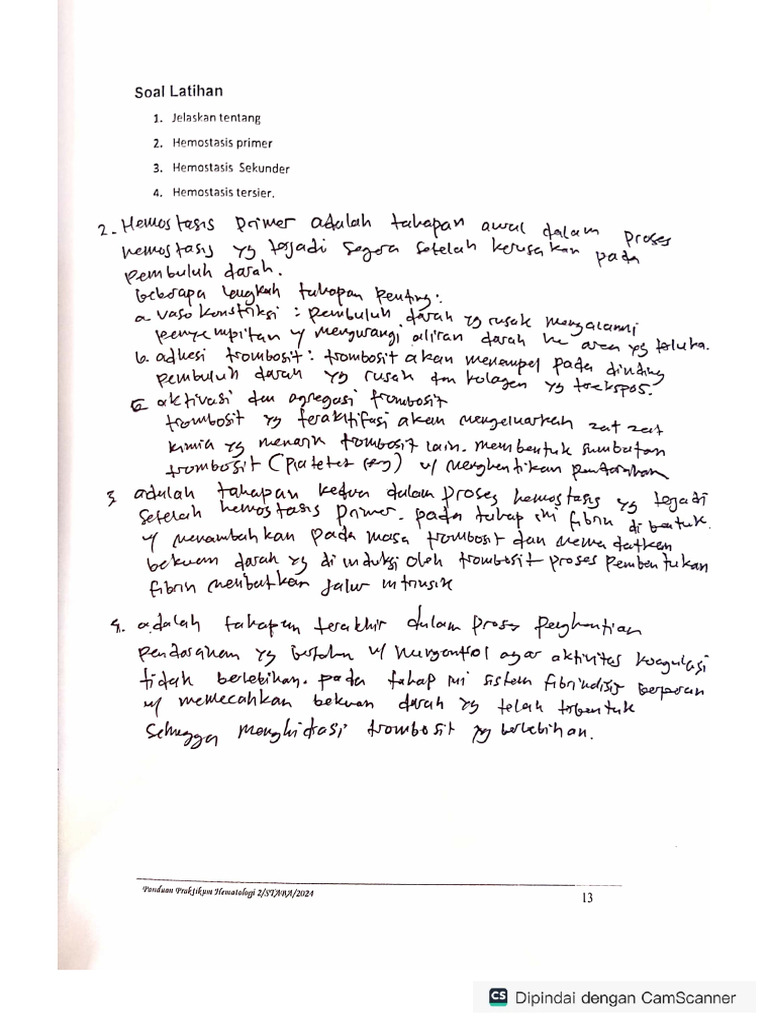 Soal Latihan
1. Jelaskan tentang
2. Hemostasis primer
3. Hemostasis Sekunder
4. Hemostasis tersier.
2. Hemostasis primer adalah tahapan awal dalam proses
hemostasis yg terjadi segera setelah kerusakan pada
pembuluh darah.
beberapa langkah tahapan penting:
a. vaso konstriksi : pembuluh darah yg rusak mengalami
penyempitan u/ mengurangi aliran darah ke area yg terluka.
b. adhesi trombosit : trombosit akan menempel pada dinding
pembuluh darah yg rusak dan kolagen yg terekspos.
c. aktivasi dan agregasi trombosit
trombosit yg teraktifasi akan mengeluarkah zat zat
kimia yg menarik trombosit lain. membentuk sumbatan
trombosit (Platetet) u/ menghentikan pendarahan
3. adalah tahapan kedua dalam proses hemostasis yg terjadi
setelah hemostasis primer. pada tahap ini fibrin di bentuk.
u/ menambahkan pada masa trombosit dan memadatkan
bekuan darah yg di induksi oleh trombosit proses pembentukan
fibrin melibatkan jalur intrinsik
4. adalah tahapan terakhir dalam proses penghentian
pendarahan yg u/ mengontrol agar aktivitas koagulasi
tidak berlebihan. pada tahap ini sistem berperan
u/ memecahkan bekuan darah yg telah terbentuk
sehingga trombosit yg berlebihan.
Panduan Praktikum Hematologi 2/STABA/2024
13
CS Dipindai dengan CamScanner